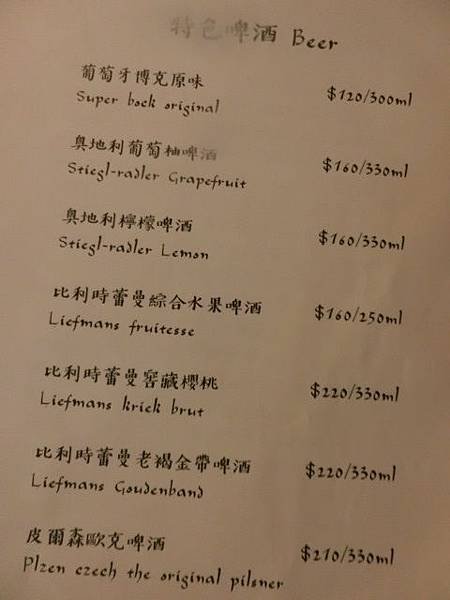 特色啤酒 Beer
葡萄牙博克原味
Super bock original
$120/300ml
奧地利葡萄柚啤酒
Stiegl-radler Grapefruit
$160/330ml
奧地利檸檬啤酒
Stiegl-radler Lemon
$160/330ml
比利時蕾曼綜合水果啤酒
Liefmans fruitesse
$160/250ml
比利時蕾曼窖藏櫻桃
Liefmans kriek brut
$220/330ml
比利時蕾曼老褐金帶啤酒
Liefmans Goudenband
$220/330ml
皮爾森歐克啤酒
Plzen czech the original pilsner
$210/330ml